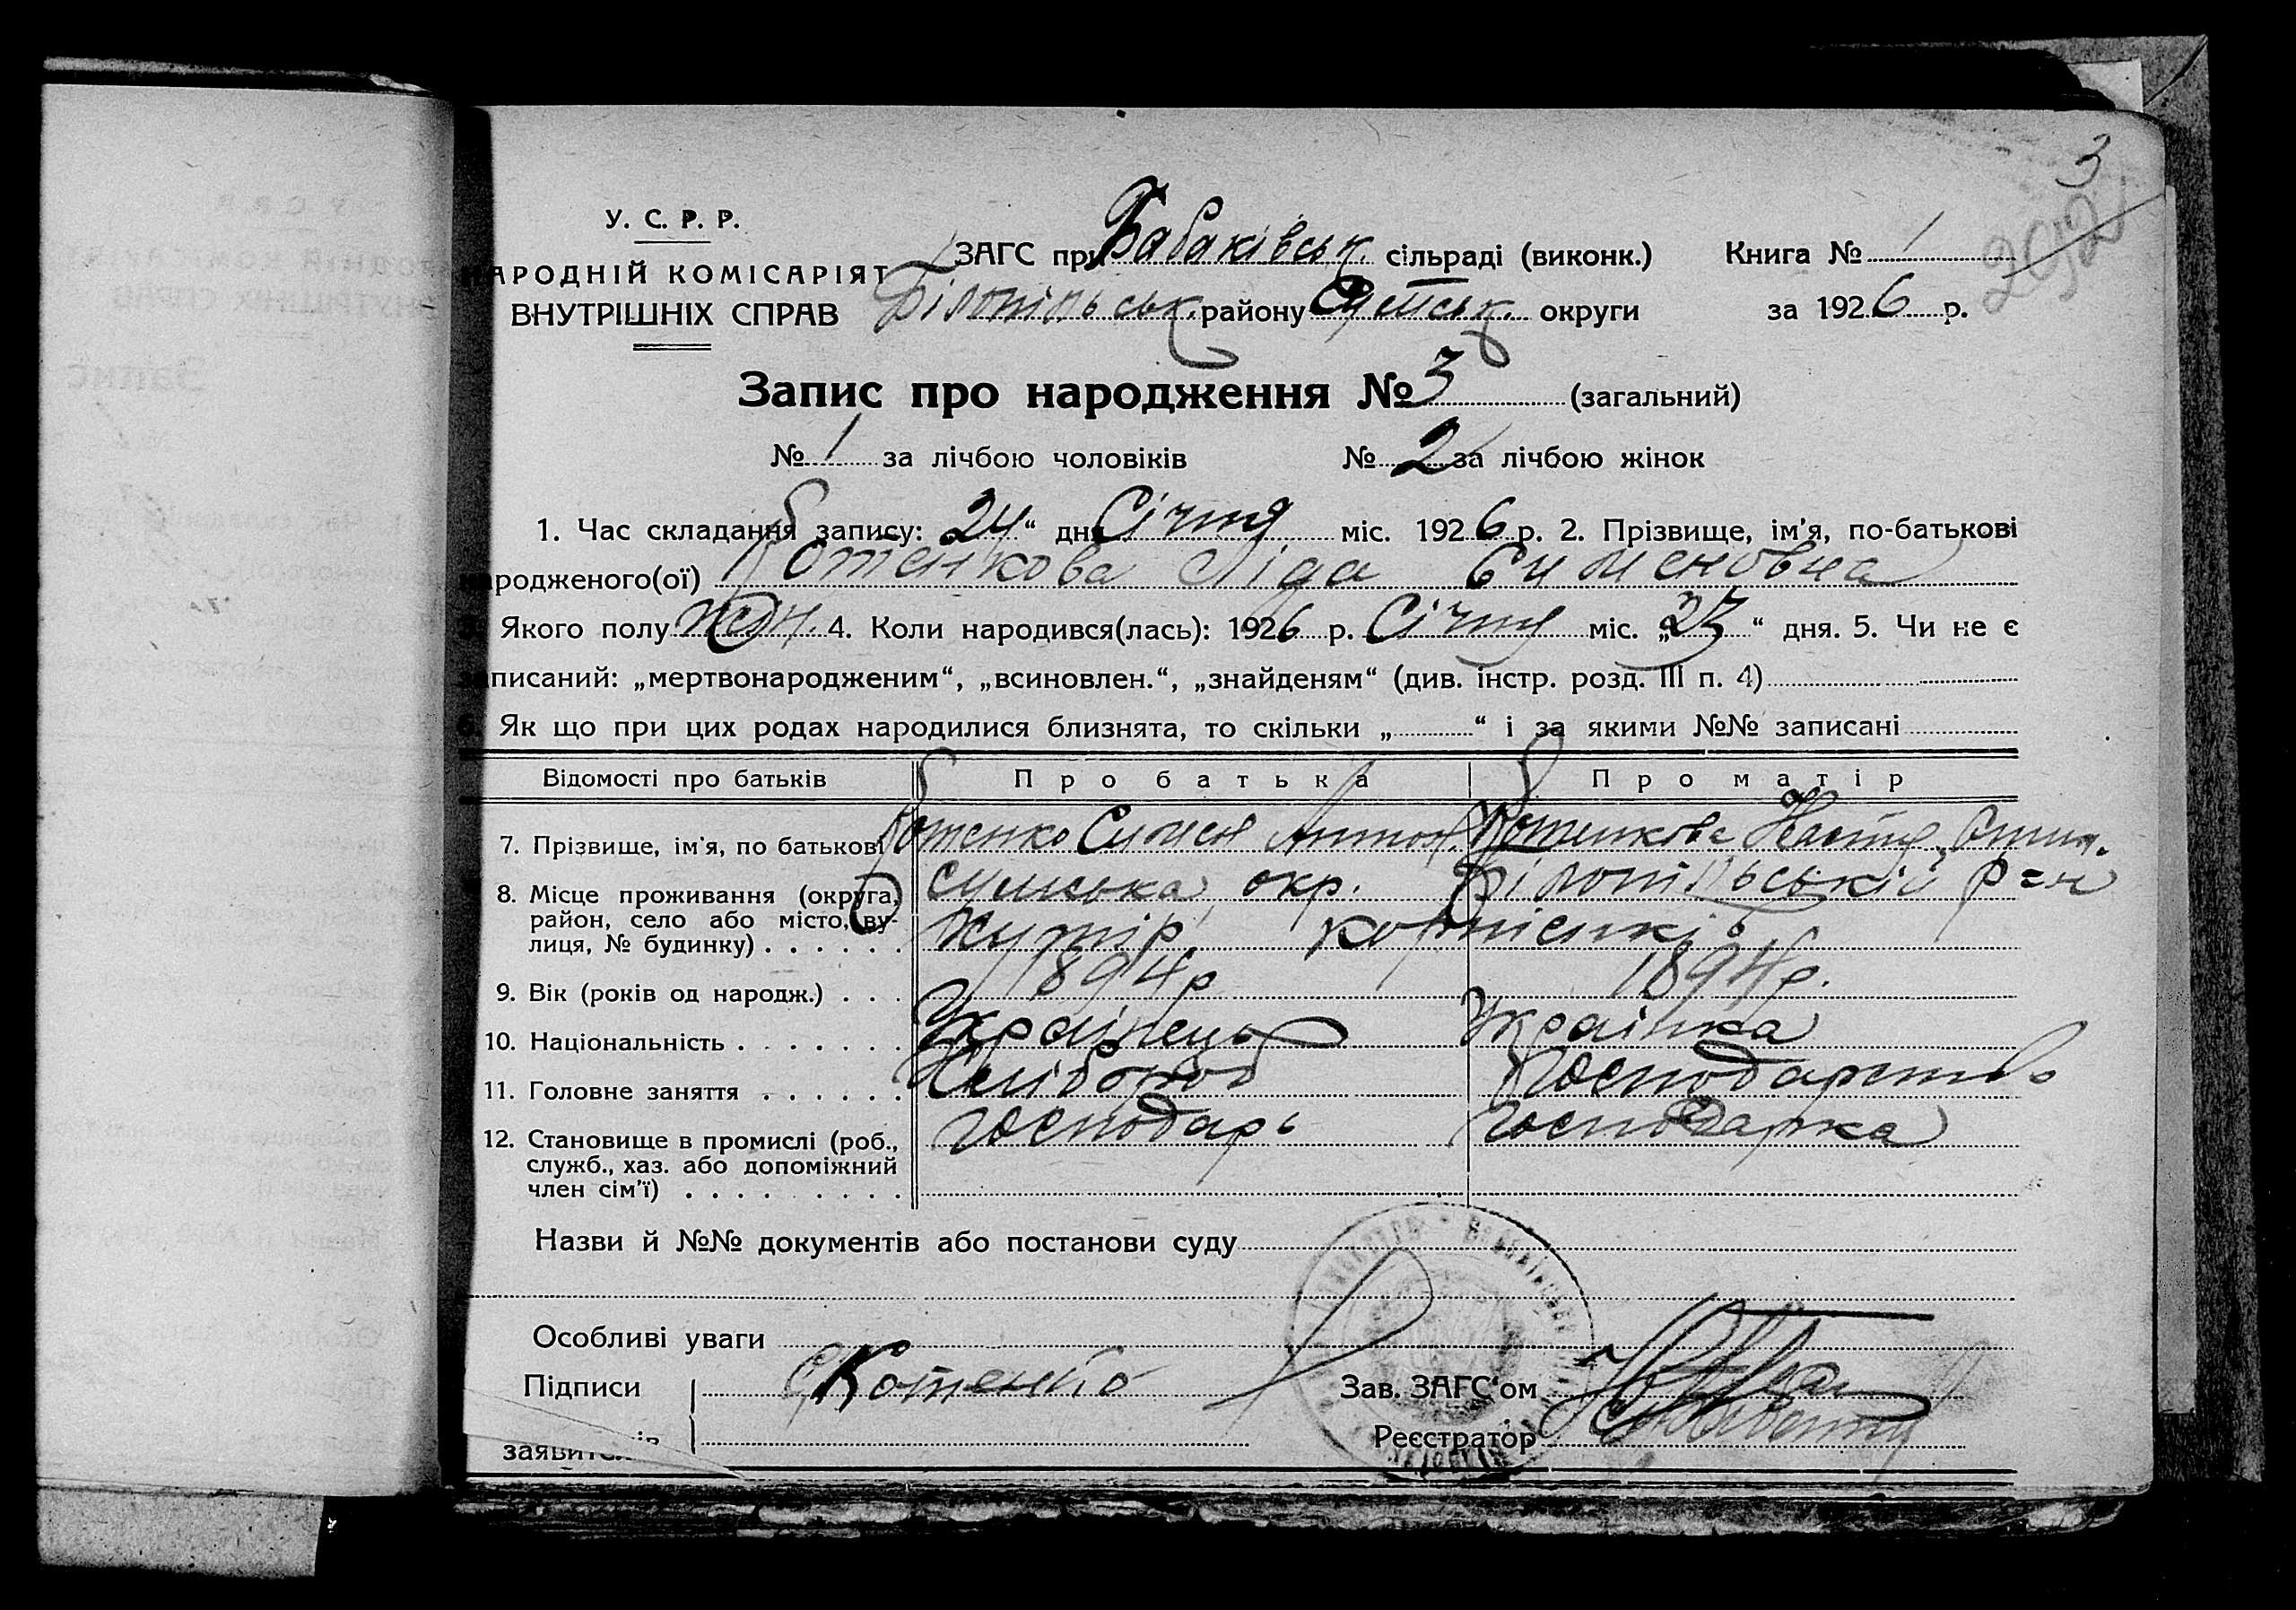 3
У. С. Р. Р.
НАРОДНІЙ КОМІСАРІЯТ
ВНУТРІШНІХ СПРАВ
ЗАГС при Бабаківськ. сільраді (виконк.) Книга № 1
Білопільськ. району Сумськ. округи за 1926 р.
Запис про народження № 3 (загальний)
№ 1 за лічбою чоловіків № 2 за лічбою жінок
1. Час складання запису: 24“ дня Січня міс. 1926 р. 2. Прізвище, ім'я, по-батькові
народженого(ої) Котенкова Ліда Сименовна
Якого полу жен. 4. Коли народився(лась): 1926 р. Січня міс. „23“ дня. 5. Чи не є
записаний: „мертвонародженим“, „всиновлен.“, „знайденям“ (див. інстр. розд. III п. 4)
6. Як що при цих родах народилися близнята, то скільки „ “ і за якими №№ записані
Відомості про батьків Про батька Про матір
7. Прізвище, ім'я, по батькові Котенко Симен Антон. Котенкова Настя
8. Місце проживання (округа, район, село або місто, вулиця, № будинку) Сумська окр. Білопільській р-н
Хутір Корнієнків
9. Вік (років од народж.) 1894р 1894р.
10. Національність Українець Українка
11. Головне заняття Хлібороб Господарство
12. Становище в промислі (роб., господарь господарка
служб., хаз. або допоміжний
член сім'ї)
Назви й №№ документів або постанови суду
Особливі уваги
Підписи С Котенко Зав. ЗАГС'ом
Реєстратор